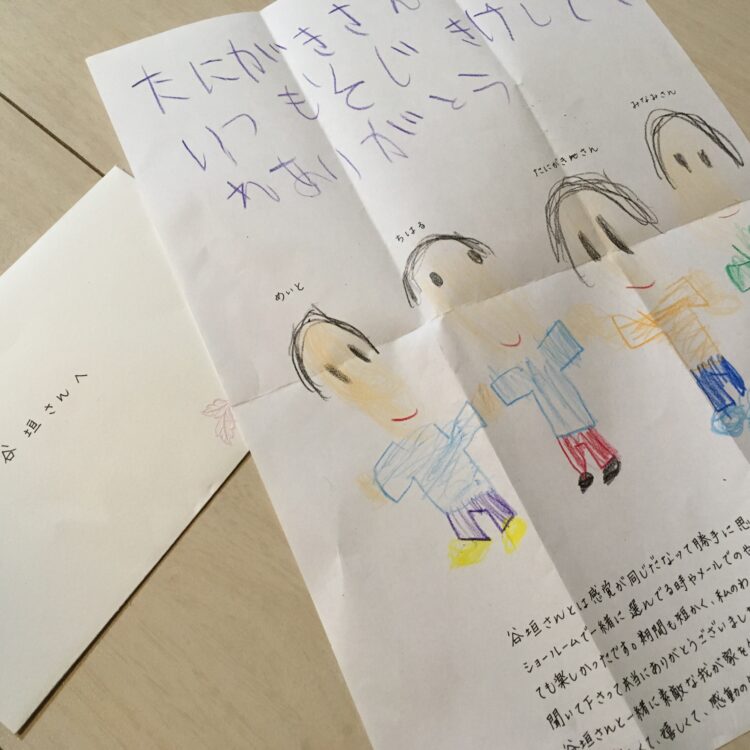 たにがきさん
いつもそじ きけして
れありがとう
みなみさん
ちはる
めいと
谷垣さんへ
谷垣さんとは感覚が同じだなって勝手に思
ショールームで一緒に選んでる時やメールでのや
ても楽しかったです。期間も短かく、私のわ
聞いて下さって本当にありがとうございました
谷垣さんと一緒に素敵な我が家を
くて、嬉しくて、感動の